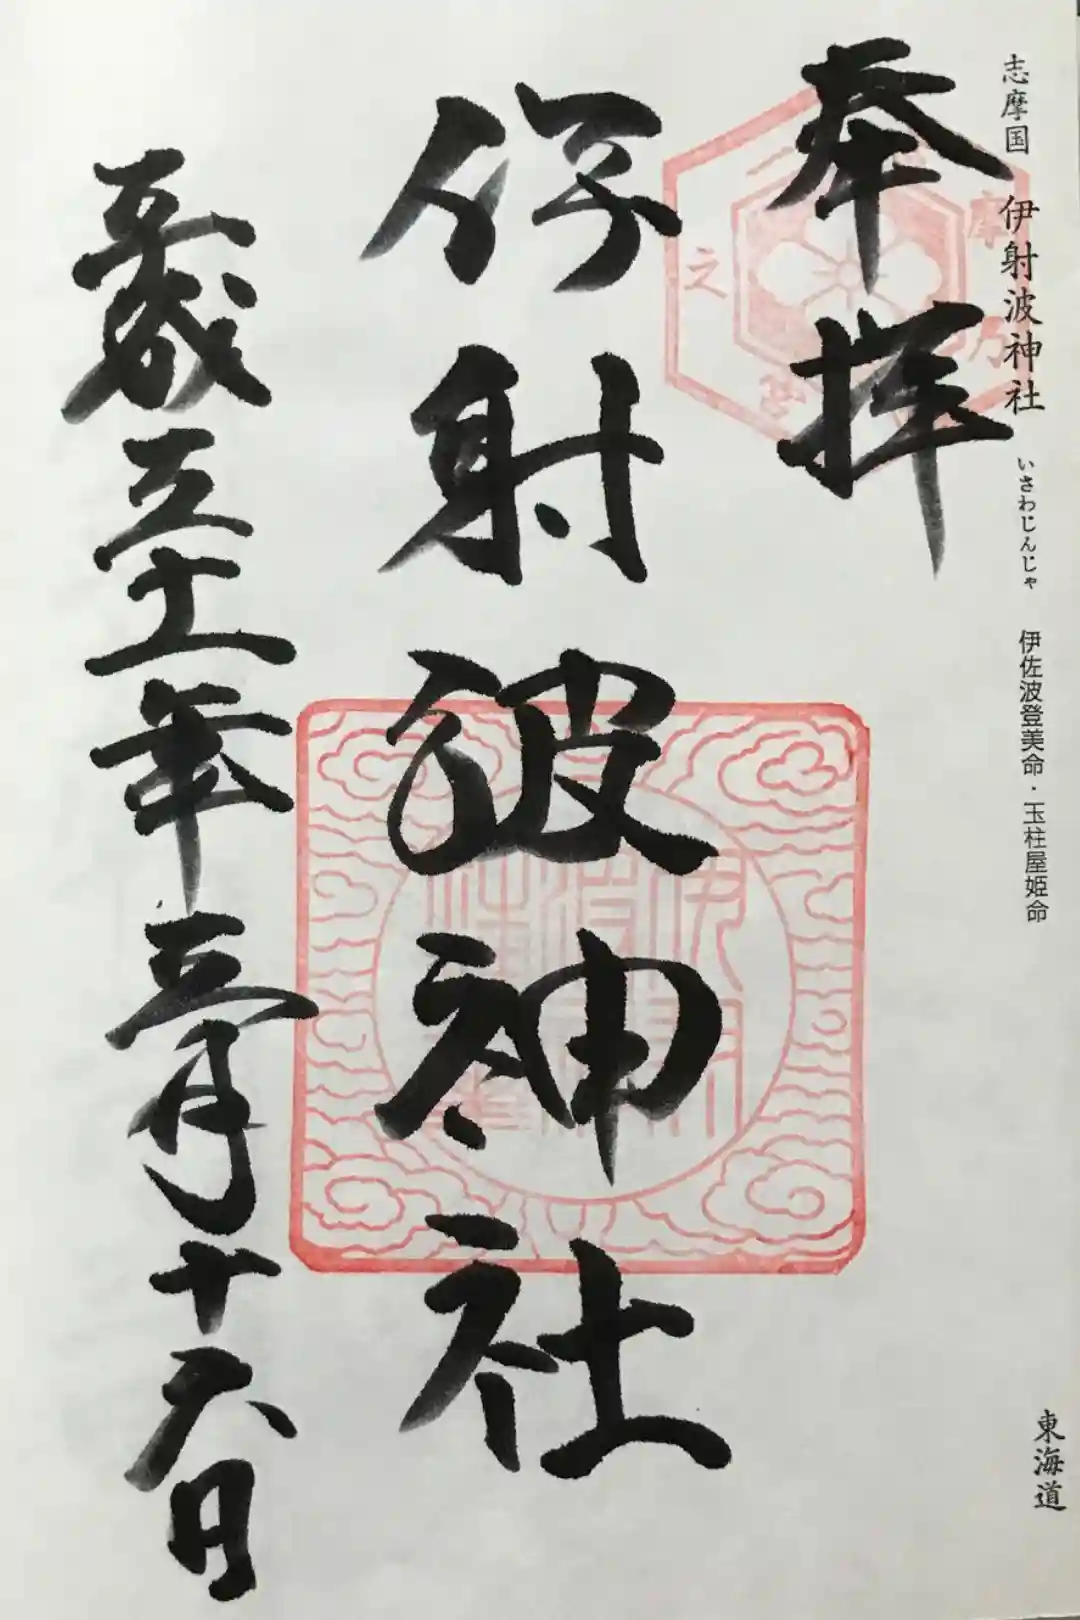 志摩国 伊射波神社 いさわじんじゃ 伊佐波登美命・玉柱屋姫命 東海道
奉拝
伊射波神社
平成三十一年三月十六日
摩乃
之